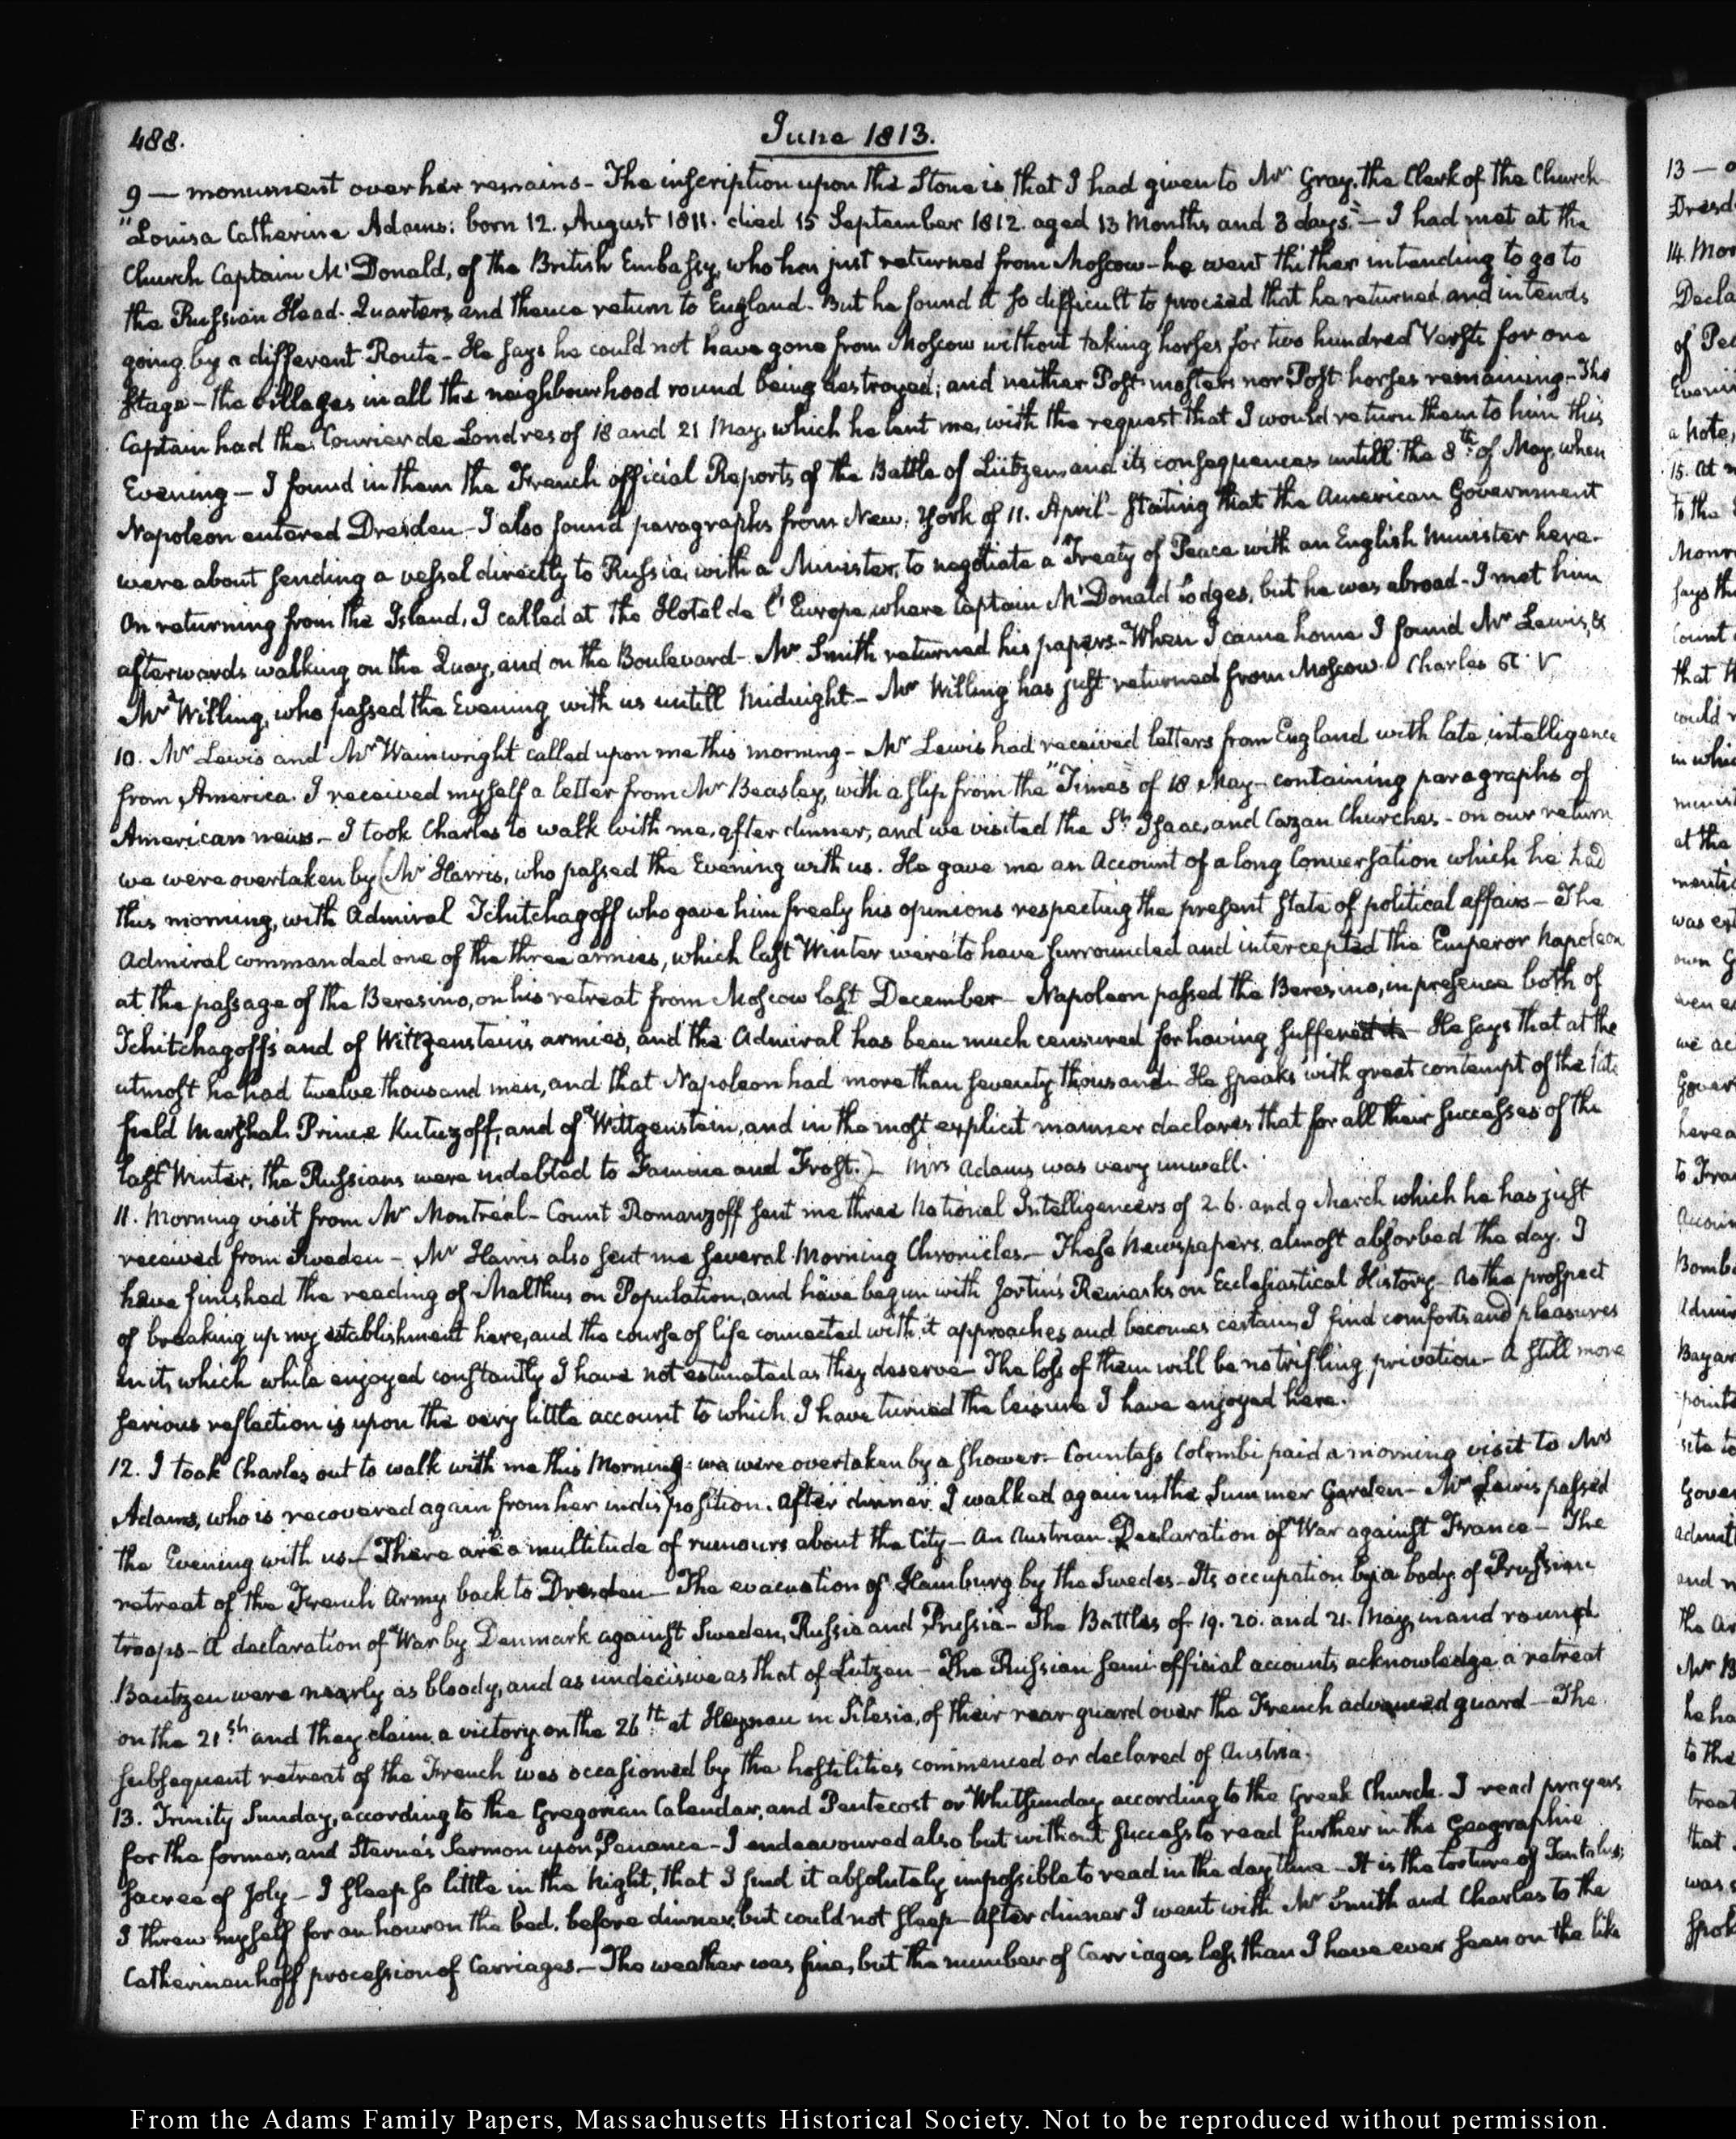 488.
June 1813.
9 — monument over her remains - The inscription upon the Stone is that I had given to Mr Gray, the Clerk of the Church
"Louisa Catherine Adams: born 12. August 1811. died 15 September 1812. aged 13 Months and 3 days." — I had met at the
Church Captain McDonald, of the British Embassy, who has just returned from Moscow - he went thither intending to go to
the Russian Head-Quarters, and thence return to England. But he found it so difficult to proceed that he returned, and intends
going by a different Route - He says he could not have gone from Moscow without taking horses for two hundred Versts for one
Stage - the villages in all the neighbourhood round being destroyed; and neither Post-masters nor Post-horses remaining - The
Captain had the Courier de Londres of 18 and 21 May, which he lent me, with the request that I would return them to him this
Evening - I found in them the French official Reports of the Battle of Lützen and its consequences untill the 8th of May, when
Napoleon entered Dresden - I also found paragraphs from New-York of 11. April - Stating that the American Government
were about sending a vessel directly to Russia, with a Minister, to negotiate a Treaty of Peace with an English Minister here.
On returning from the Island, I called at the Hotel de l'Europe, where Captain McDonald lodges, but he was abroad - I met him
afterwards walking on the Quay, and on the Boulevard - Mr Smith returned his papers - When I came home I found Mr Lewis, &
Mr Willing, who passed the Evening with us untill Midnight - Mr Willing has just returned from Moscow. Charles V
10. Mr Lewis and Mr Wainwright called upon me this morning - Mr Lewis had received letters from England with late intelligence
from America. I received myself a letter from Mr Beasley, with a slip from the "Times" of 18 May - containing paragraphs of
American news. - I took Charles to walk with me, after dinner, and we visited the St Isaac, and Cazan Churches - on our return
we were overtaken by (Mr Harris, who passed the Evening with us. He gave me an Account of a long Conversation which he had
this morning, with Admiral Tchitchagoff who gave him freely his opinions respecting the present state of political affairs - The
Admiral commanded one of the three armies, which last Winter were to have surrounded and intercepted the Emperor Napoleon
at the passage of the Beresino, on his retreat from Moscow last December - Napoleon passed the Beresino, in presence both of
Tchitchagoff's and of Wittgenstein's armies, and the Admiral has been much censured for having suffered it - He says that at the
utmost he had twelve thousand men, and that Napoleon had more than seventy thousand. He speaks with great contempt of the late
field Marshal Prince Kutuzoff, and of Wittgenstein, and in the most explicit manner declares that for all their successes of the
last Winter, the Russians were indebted to Famine and Frost.) - Mrs Adams was very unwell.
11. Morning visit from Mr Montréal - Count Romanzoff sent me three National Intelligencers of 2. 6. and 9 March which he has just
received from Sweden - Mr Harris also sent me several Morning Chronicles - These Newspapers, almost absorbed the day. I
have finished the reading of Malthus on Population, and have begun with Jortin's Remarks on Ecclesiastical History - As the prospect
of breaking up my establishment here, and the course of life connected with it approaches and becomes certain, I find comforts and pleasures
in it, which while enjoyed constantly I have not estimated as they deserve - The loss of them will be no trifling privation - A still more
serious reflection is upon the very little account to which I have turned the leisure I have enjoyed here.
12. I took Charles out to walk with me this Morning: we were overtaken by a shower - Countess Colombi paid a morning visit to Mrs
Adams, who is recovered again from her indisposition. After dinner, I walked again in the Summer Garden - Mr Lewis passed
the Evening with us - (There are a multitude of rumours about the City - An Austrian Declaration of War against France - The
retreat of the French Army back to Dresden - The evacuation of Hamburg by the Swedes - Its occupation by a body of Prussian
troops - A declaration of War by Denmark against Sweden, Russia and Prussia - The Battles of 19. 20. and 21. May, in and round
Bautzen were nearly as bloody, and as undecisive as that of Lützen - The Russian semi-official accounts acknowledge a retreat
on the 21st and they claim a victory on the 26th at Haynau in Silesia, of their rear guard over the French advanced guard - The
subsequent retreat of the French was occasioned by the hostilities commenced or declared of Austria.
13. Trinity Sunday, according to the Gregorian Calendar, and Pentecost or Whitsunday according to the Greek Church. I read prayers
for the former, and Sterne's Sermon upon Penance - I endeavoured also but without success to read further in the Geographie
sacrée of Joly - I sleep so little in the Night, that I find it absolutely impossible to read in the day time - It is the torture of Tantalus;
I threw myself for an hour on the bed, before dinner, but could not sleep - After dinner I went with Mr Smith and Charles to the
Catherinenhoff procession of Carriages - The weather was fine, but the number of Carriages less than I have ever seen on the like
From the Adams Family Papers, Massachusetts Historical Society. Not to be reproduced without permission.